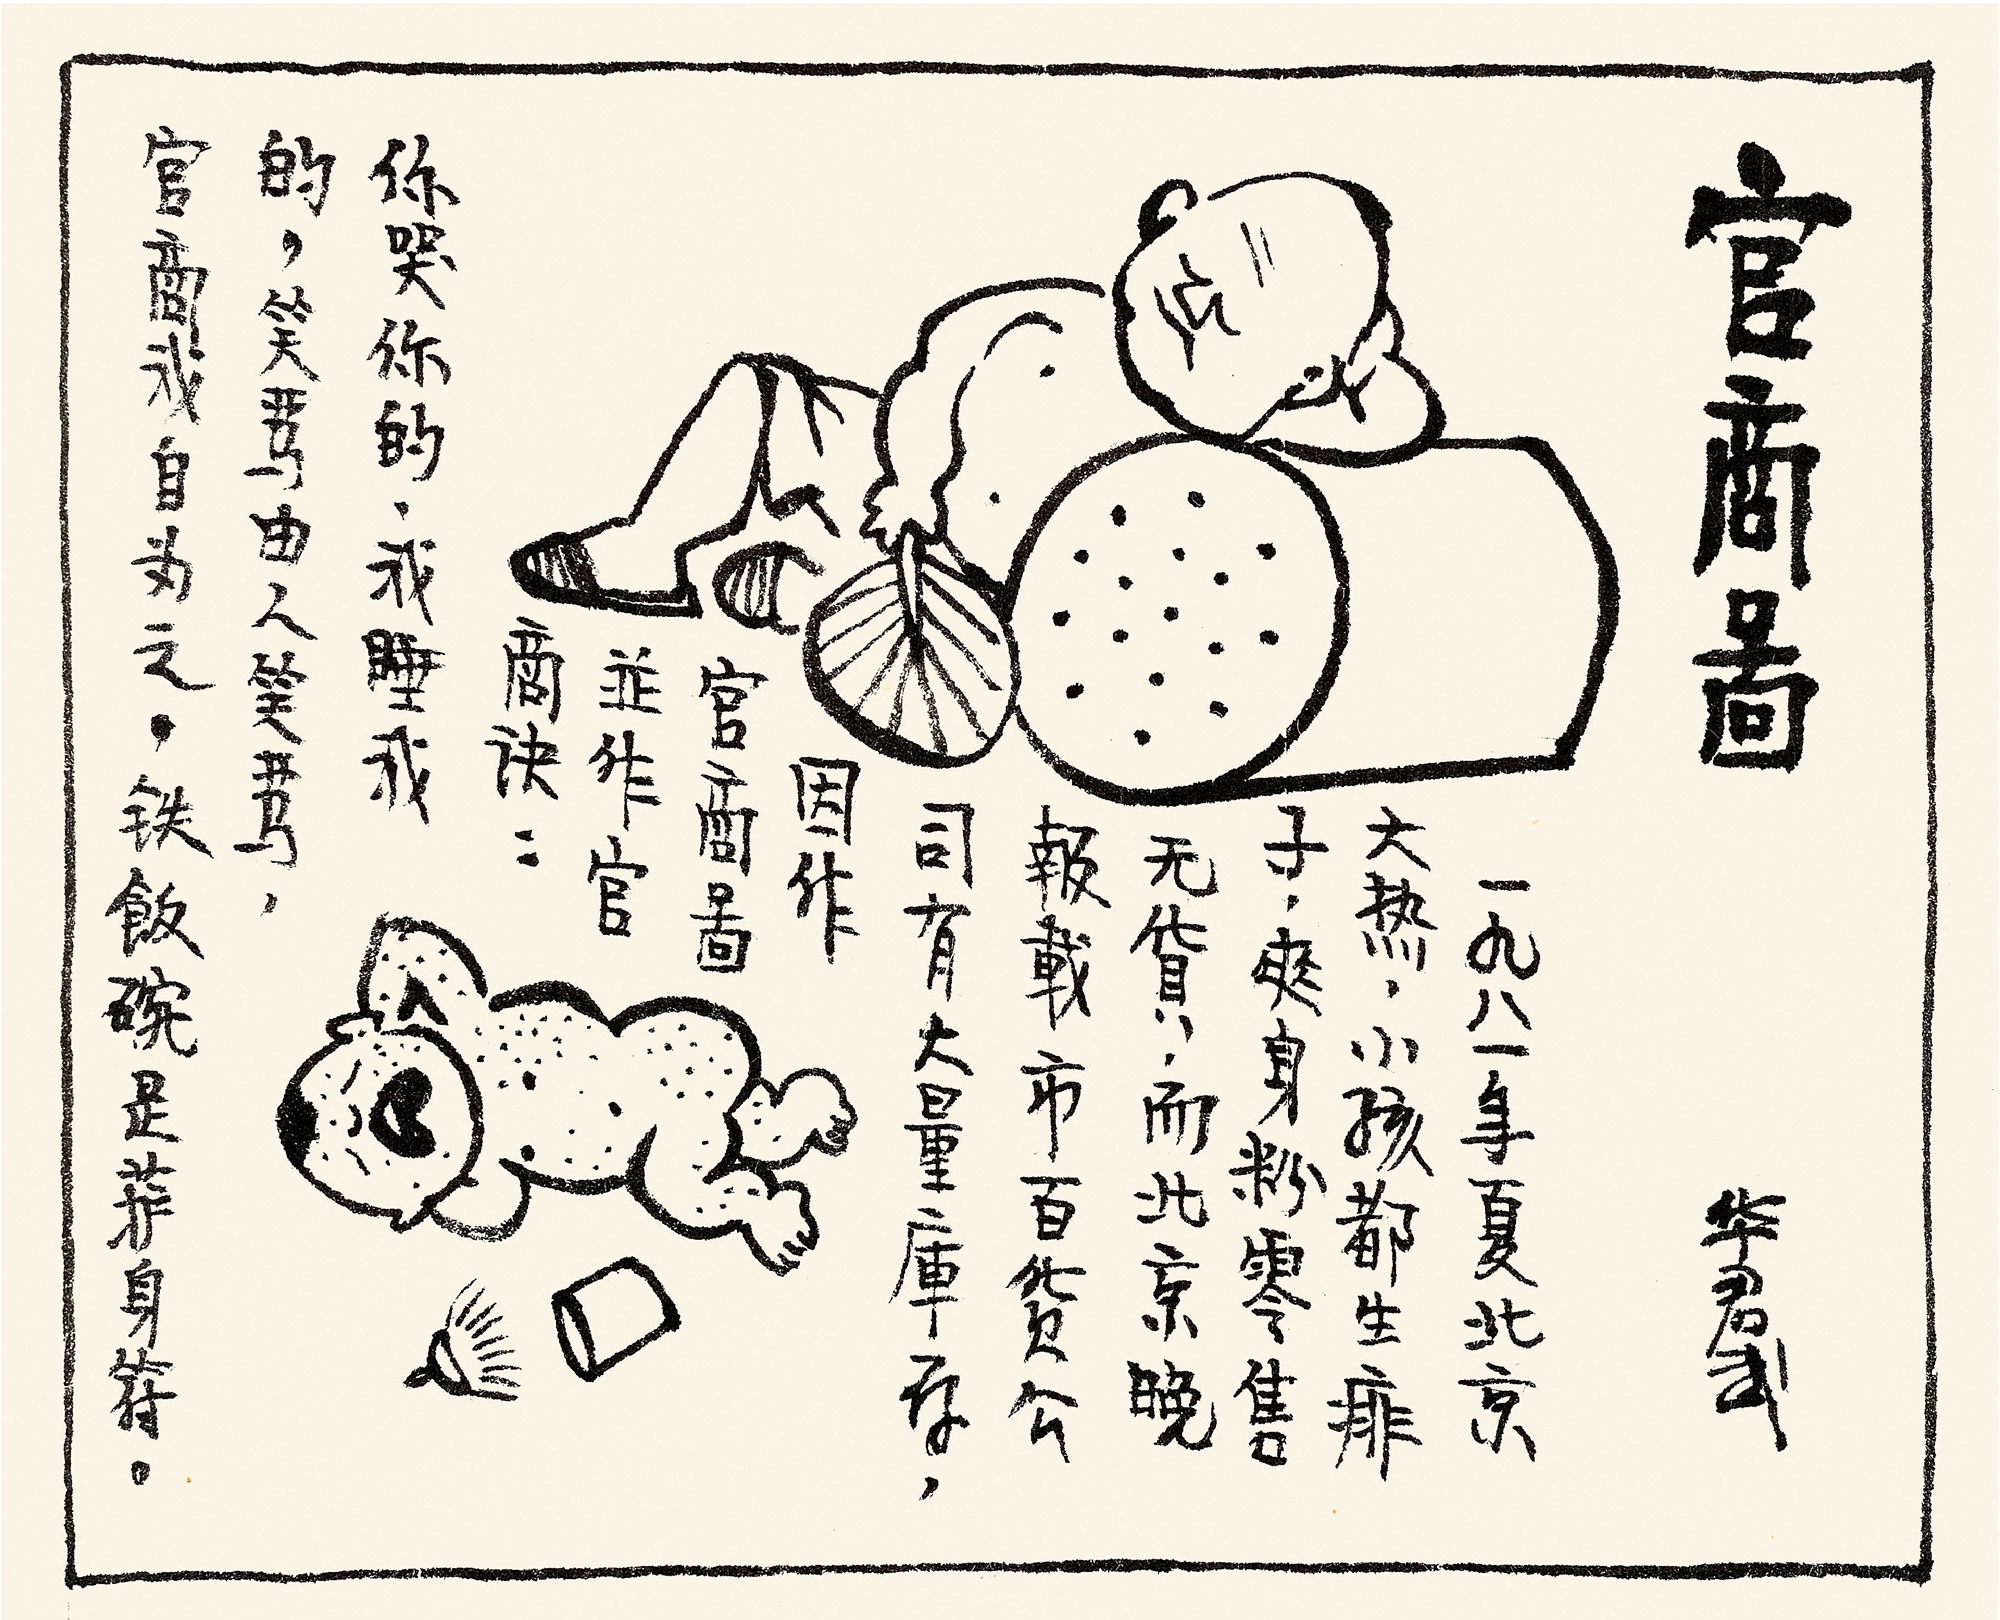 官商啚
华君武
一九八一年夏北京
大热，小孩都生痱
子，爽身粉零售
无貨，而北京晚
報載市百货公
司有大量庫存，
因作
官商啚
並作官
商诀：
你哭你的，我睡我
的，笑骂由人笑骂，
官商我自为之。铁飯碗是护身符。